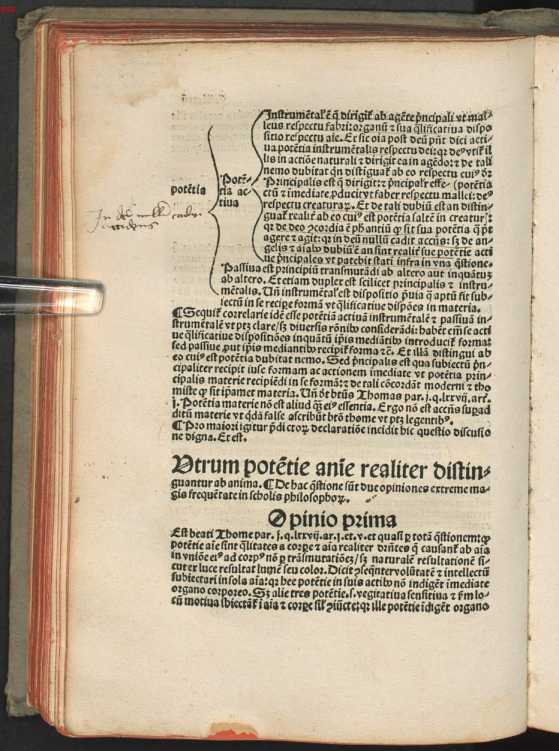 Instrumētal' ē q̄ dirigit̄ ab agēte p̄ncipali vt mal⸗
leus respectu fabri: organū ⁊ sua q̄lificatiua dispo
sitio respectu aīe. Et sic oīa post deū p̄nt dici acti⸗
ua potētia instrumētalis respectu dei: q̄
lis in actiōe naturali ⁊ dirigit̄ ea in agēdo: ⁊ de tali
nemo dubitat q̄n distīguat̄ ab eo respectu cui⁹
Potē⸗
tia ac⸗
tiua
potētia
Principalis est q̄ dirigit: ⁊ p̄ncipalr̄ effe⸗ (potētia
ctū ⁊ īmediate ꝓducit vt faber respectu mallei: de⁹
respectu creaturaꝝ. Et de tali dubiū est an distin⸗
guat̄ realit̄ ab eo cui⁹ est potētia saltē in creatur/
qr̄ de deo ꝯcordia ē ph̄antiū ꝙ sit sua potētia q̄ p̄t
agere ⁊ agit: qr̄ in deū nullū cadit accn̄s: sꝫ de an⸗
gelis ⁊ aīab⁹ dubiū ē an sint realit̄ sue potētie acti
ue p̄ncipales vt patebit statī infra in vna q̄stione.
Passiua est principiū transmutādi ab altero aut inquātuꝫ
ab altero. Et etiam duplex est scilicet principalis ⁊ instru⸗
mētalis. Vn̄ instrumētal' est dispositio p̄uia q̄ aptū fit sub⸗
iectū in se recipe formā vt q̄lificatiue dispōes in materia.
¶ Sequit̄ correlarie idē esse potētiā actiuā instrumētalē ⁊ passiuā in⸗
strumētalē vt ptꝫ clare/ sꝫ diuersis rōnib⁹ considerādi: habēt em̄ se acti
ue q̄lificatiue dispositiōes inquātū ip̄is mediātib⁹ introducit̄ formā
sed passiue ꝓut ip̄is mediantib⁹ recipit̄ forma ⁊c̄. Et illā distingui ab
eo cui⁹ est potētia dubitat nemo. Sed p̄ncipalis est qua subiectū p̄n⸗
cipaliter recipit in se formam ac actionem īmediate vt potētia prin⸗
cipalis materie recipiēdi in se formā: ⁊ de tali cōcordāt moderni ⁊ tho
miste ꝙ sit ip̄amet materia. Vn̄ bt̄us Thomas par. j. q. lxxvij. art̄.
j. Potētia materie nō est aliud q̄ꝫ ei⁹ essentia. Ergo nō est accn̄s suꝑad
ditū materie vt q̄dā false ascribūt bt̄o thome vt ptꝫ legentib⁹.
¶ Pro maiori igitur p̄dictoꝝ declaratiōe incidit hic questio discussio
ne digna. Et est.
Vtrum potētie anīe realiter distin⸗
guantur ab anima. ¶ De hac q̄stione sūt due opiniones extreme ma⸗
gis frequētate in scholis philosophoꝝ.
Opinio prima
Est beati Thome par. j. q. lxxvij. ar. j. ⁊ v. et quasi ꝑ totā q̄stionem: ꝙ
potētie aīe sint q̄litates a corꝑe ⁊ aīa realiter dr̄ntes q̄ causant̄ ab aīa
in vniōe ei⁹ ad corp⁹ nō ꝑ trāsmutatiōeꝫ/ sꝫ naturalē resultationē si⸗
cut ex luce resultat lumē seu color. Dicit ꝯseq̄nter volūtatē ⁊ intellectū
subiectari in sola aīa: qr̄ hee potētie in suis actib⁹ nō indigēt īmediate
organo corporeo. Sꝫ alie tres potētie. s. vegetatiua sensitiua ⁊ ẜm lo⸗
cū motiua sbiectāt̄ ī aīa ⁊ corꝑe sil' ꝯiūctꝭ: qr̄ ille potētie īdigēt organo